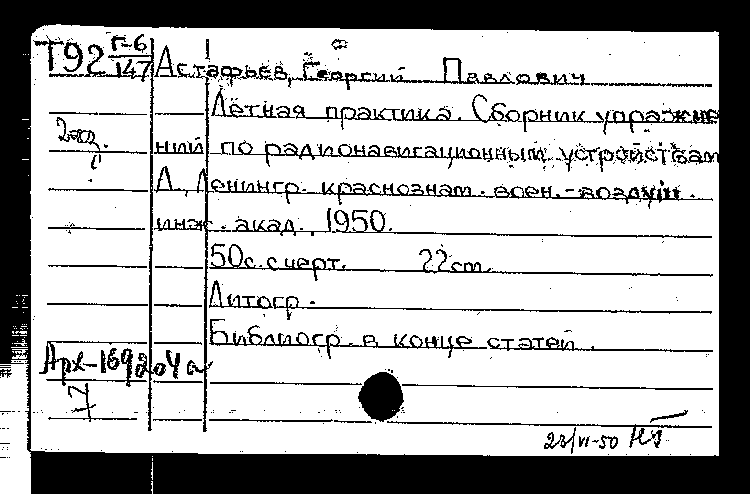 Т92 Г-6/147 Астафьев, Георгий Павлович
Лётная практика. Сборник упражне
2 экз.
ний по радионавигационным устройствам
Л., Ленингр. краснознам. воен.-воздуш.
инж. акад., 1950.
50 с. с черт. 22 cm.
Литогр.
Библиогр. в конце статей.
Арх-169204а
7
23/VI-50